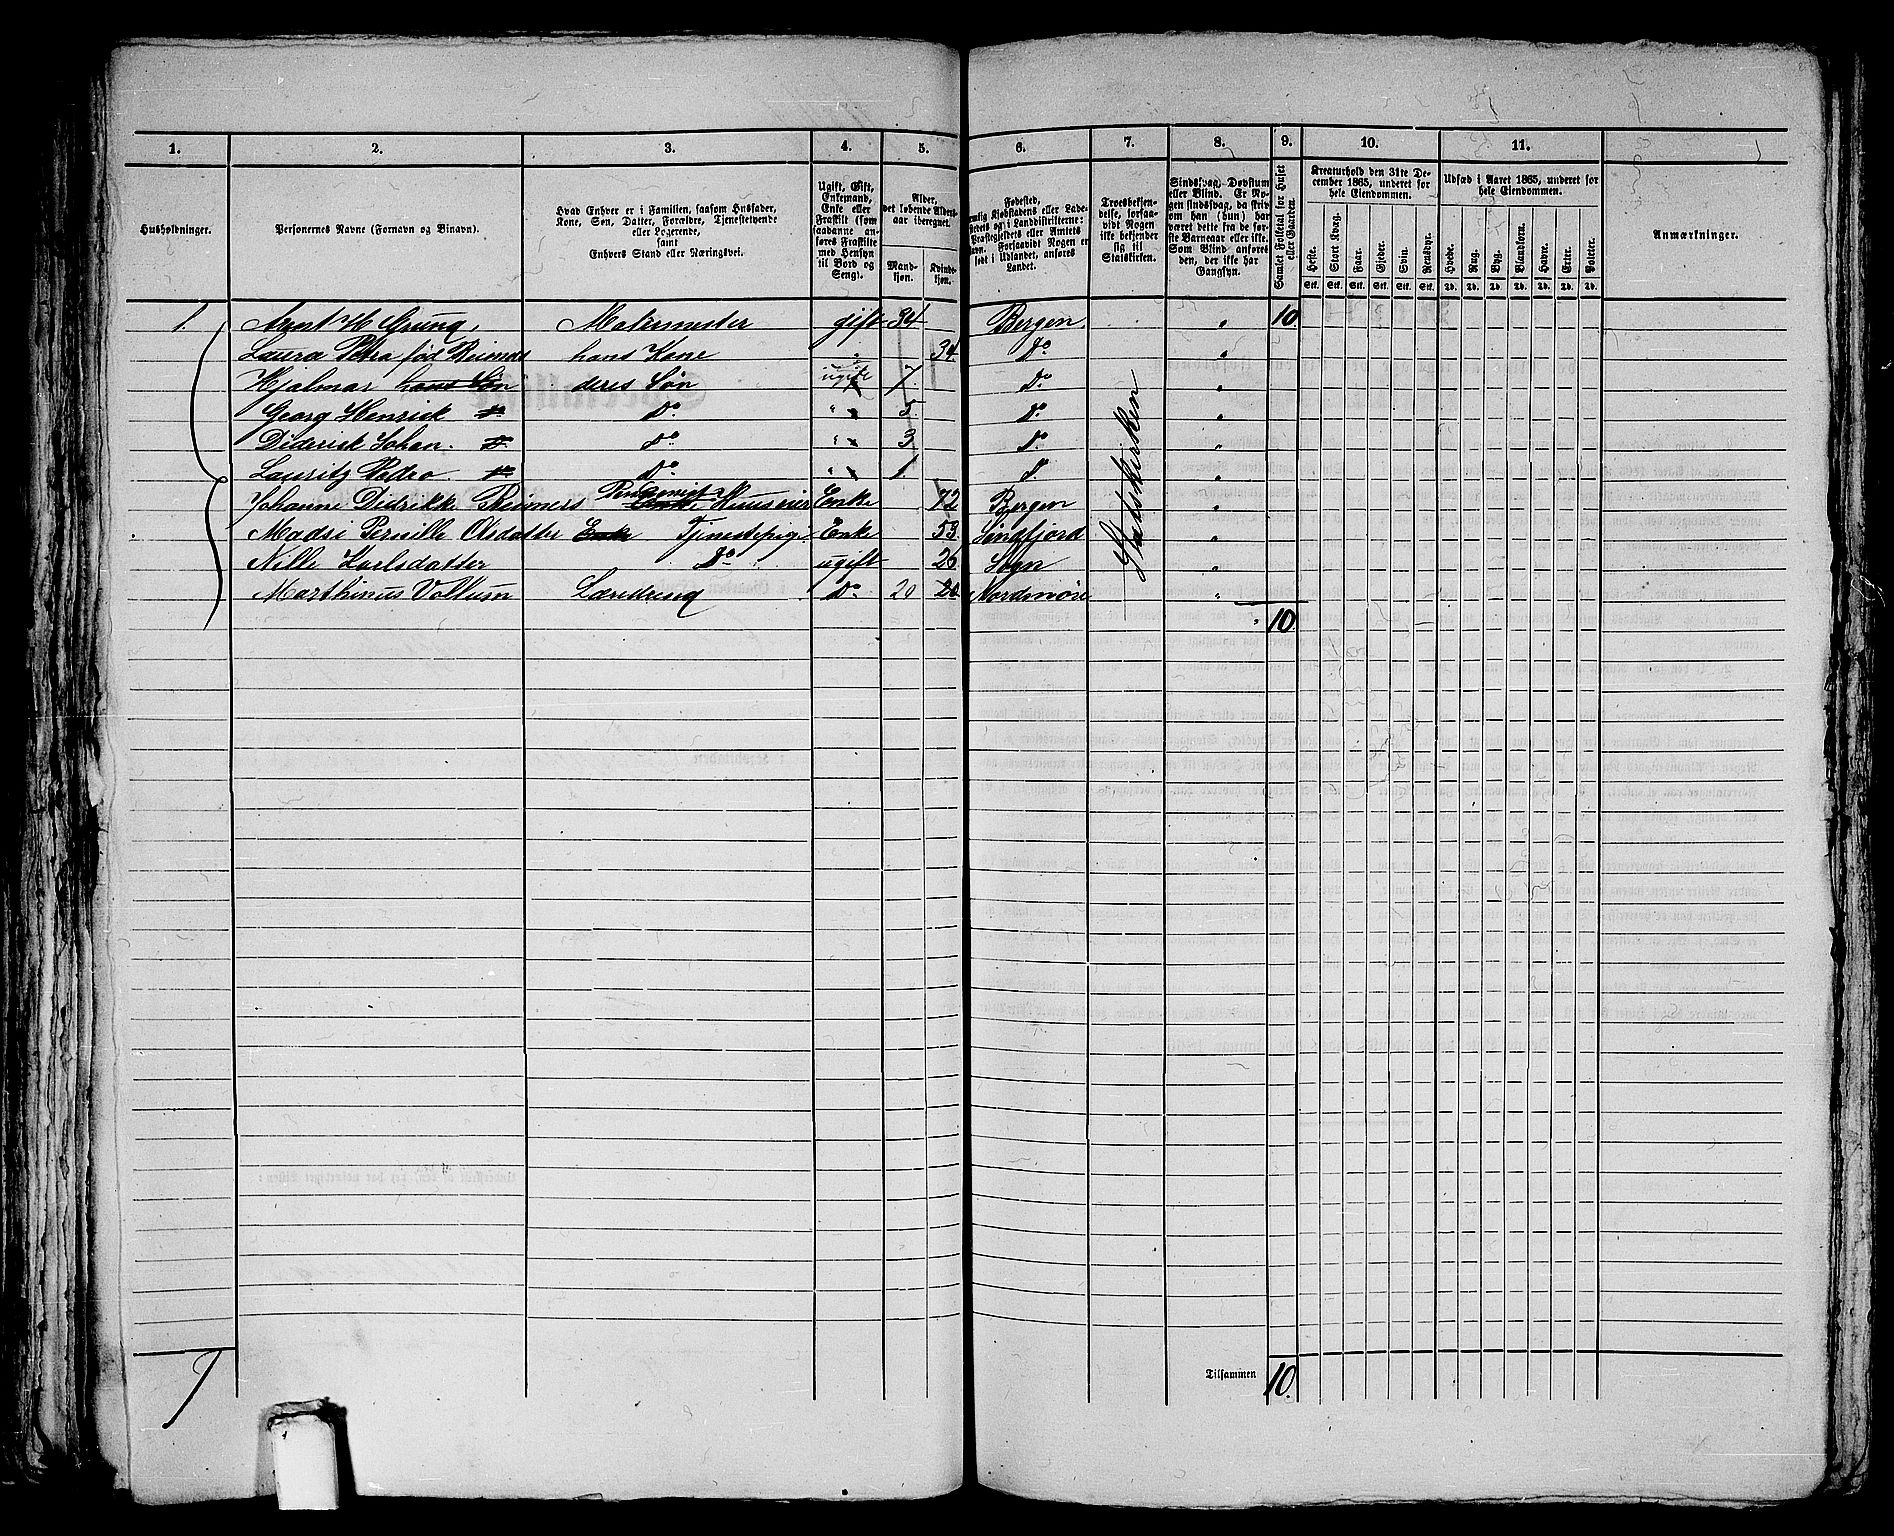 1. 2. 3. 4. 5. 6. 7. 8. 9. 10. 11.
Husholdninger.
Personernes Navne (Fornavn og Binavn).
Hvad Enhver er i Familien, saasom Husfader,
Kone, Søn, Datter, Forældre, Tjenestetyende
eller Logerende,
samt
Enhvers Stand eller Næringsvei.
Ugift, Gift,
Enkemand,
Enke eller
Fraskilt (som
saadanne an-
føres Fraskilte
med Hensyn
til Bord og
Seng).
Alder,
det løbende Alders-
aar iberegnet.
Mand-
kjøn.
Kvind-
kjøn.
Fødested,
Kjøbstadens eller Lade-
stedets og i Landdistrikterne:
Præstegjeldets eller Amtets
Navn. Forsaavidt Nogen er
født i Udlandet, anføres
Landet.
Troesbekjen-
delse, forsaa-
vidt Nogen
ikke bekjender
sig til
Statskirken.
Sindssvag, Døvstum
eller Blind. Er No-
gen sindssvag, da skriv
om han (hun) har
været dette fra de før-
ste Barneaar eller ei.
Som Blind anføres
den, der ikke har
Gangsyn.
Samlet Folketal for Huset
eller Gaarden.
Kreaturhold den 31te De-
cember 1865, underet for
hele Eiendommen.
Heste. Stort Kvæg. Faar. Gjeder. Svin. Rensdyr.
Stk. Stk. Stk. Stk. Stk. Stk.
Udsæd i Aaret 1865, underet for
hele Eiendommen.
Hvede. Rug. Byg. Blandkorn. Havre. Erter. Poteter.
Td. Td. Td. Td. Td. Td. Td.
Anmærkninger.
1. Arent H Grung, Malermester gift 34 Bergen " 10
Laura Petra fød Reimers hans Kone " 34 Do "
Hjalmar hans Søn deres Søn ugift 7. Do "
Georg Henrick Do Do " 5 Do "
Diderick Johan. Do Do " 3 Do "
Lauritz Pedro Do Do " 1. Do "
Johanne Didrikke Reimers Enke Huuseier Enke 72 Bergen "
Madsi Pernille Olsdatter Enke Tjenestepige Enke 53 Søndfjord "
Nille Karlsdatter Do ugift 26 Sogn "
Marthinus Vollum Lærdreng Do 20 20 Nordmøre "
Statskirken
10
1
Tilsammen 10.